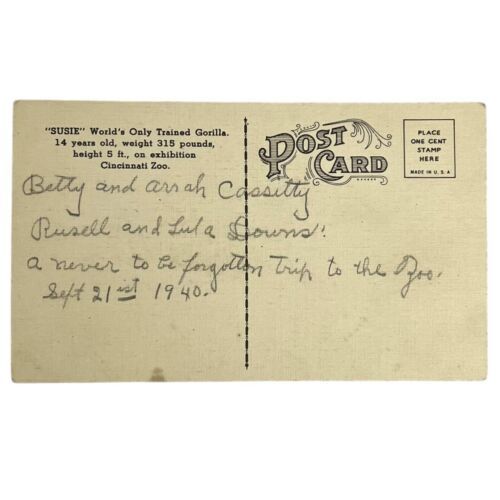 "SUSIE" World's Only Trained Gorilla.
14 years old, weight 315 pounds,
height 5 ft., on exhibition
Cincinnati Zoo.
POST CARD
PLACE
ONE CENT
STAMP
HERE
MADE IN U.S.A
Betty and Arrah Cassitty
Rusell and Lula Downs!
A never to be forgotton trip to the Zoo.
Sept 21ist 1940.